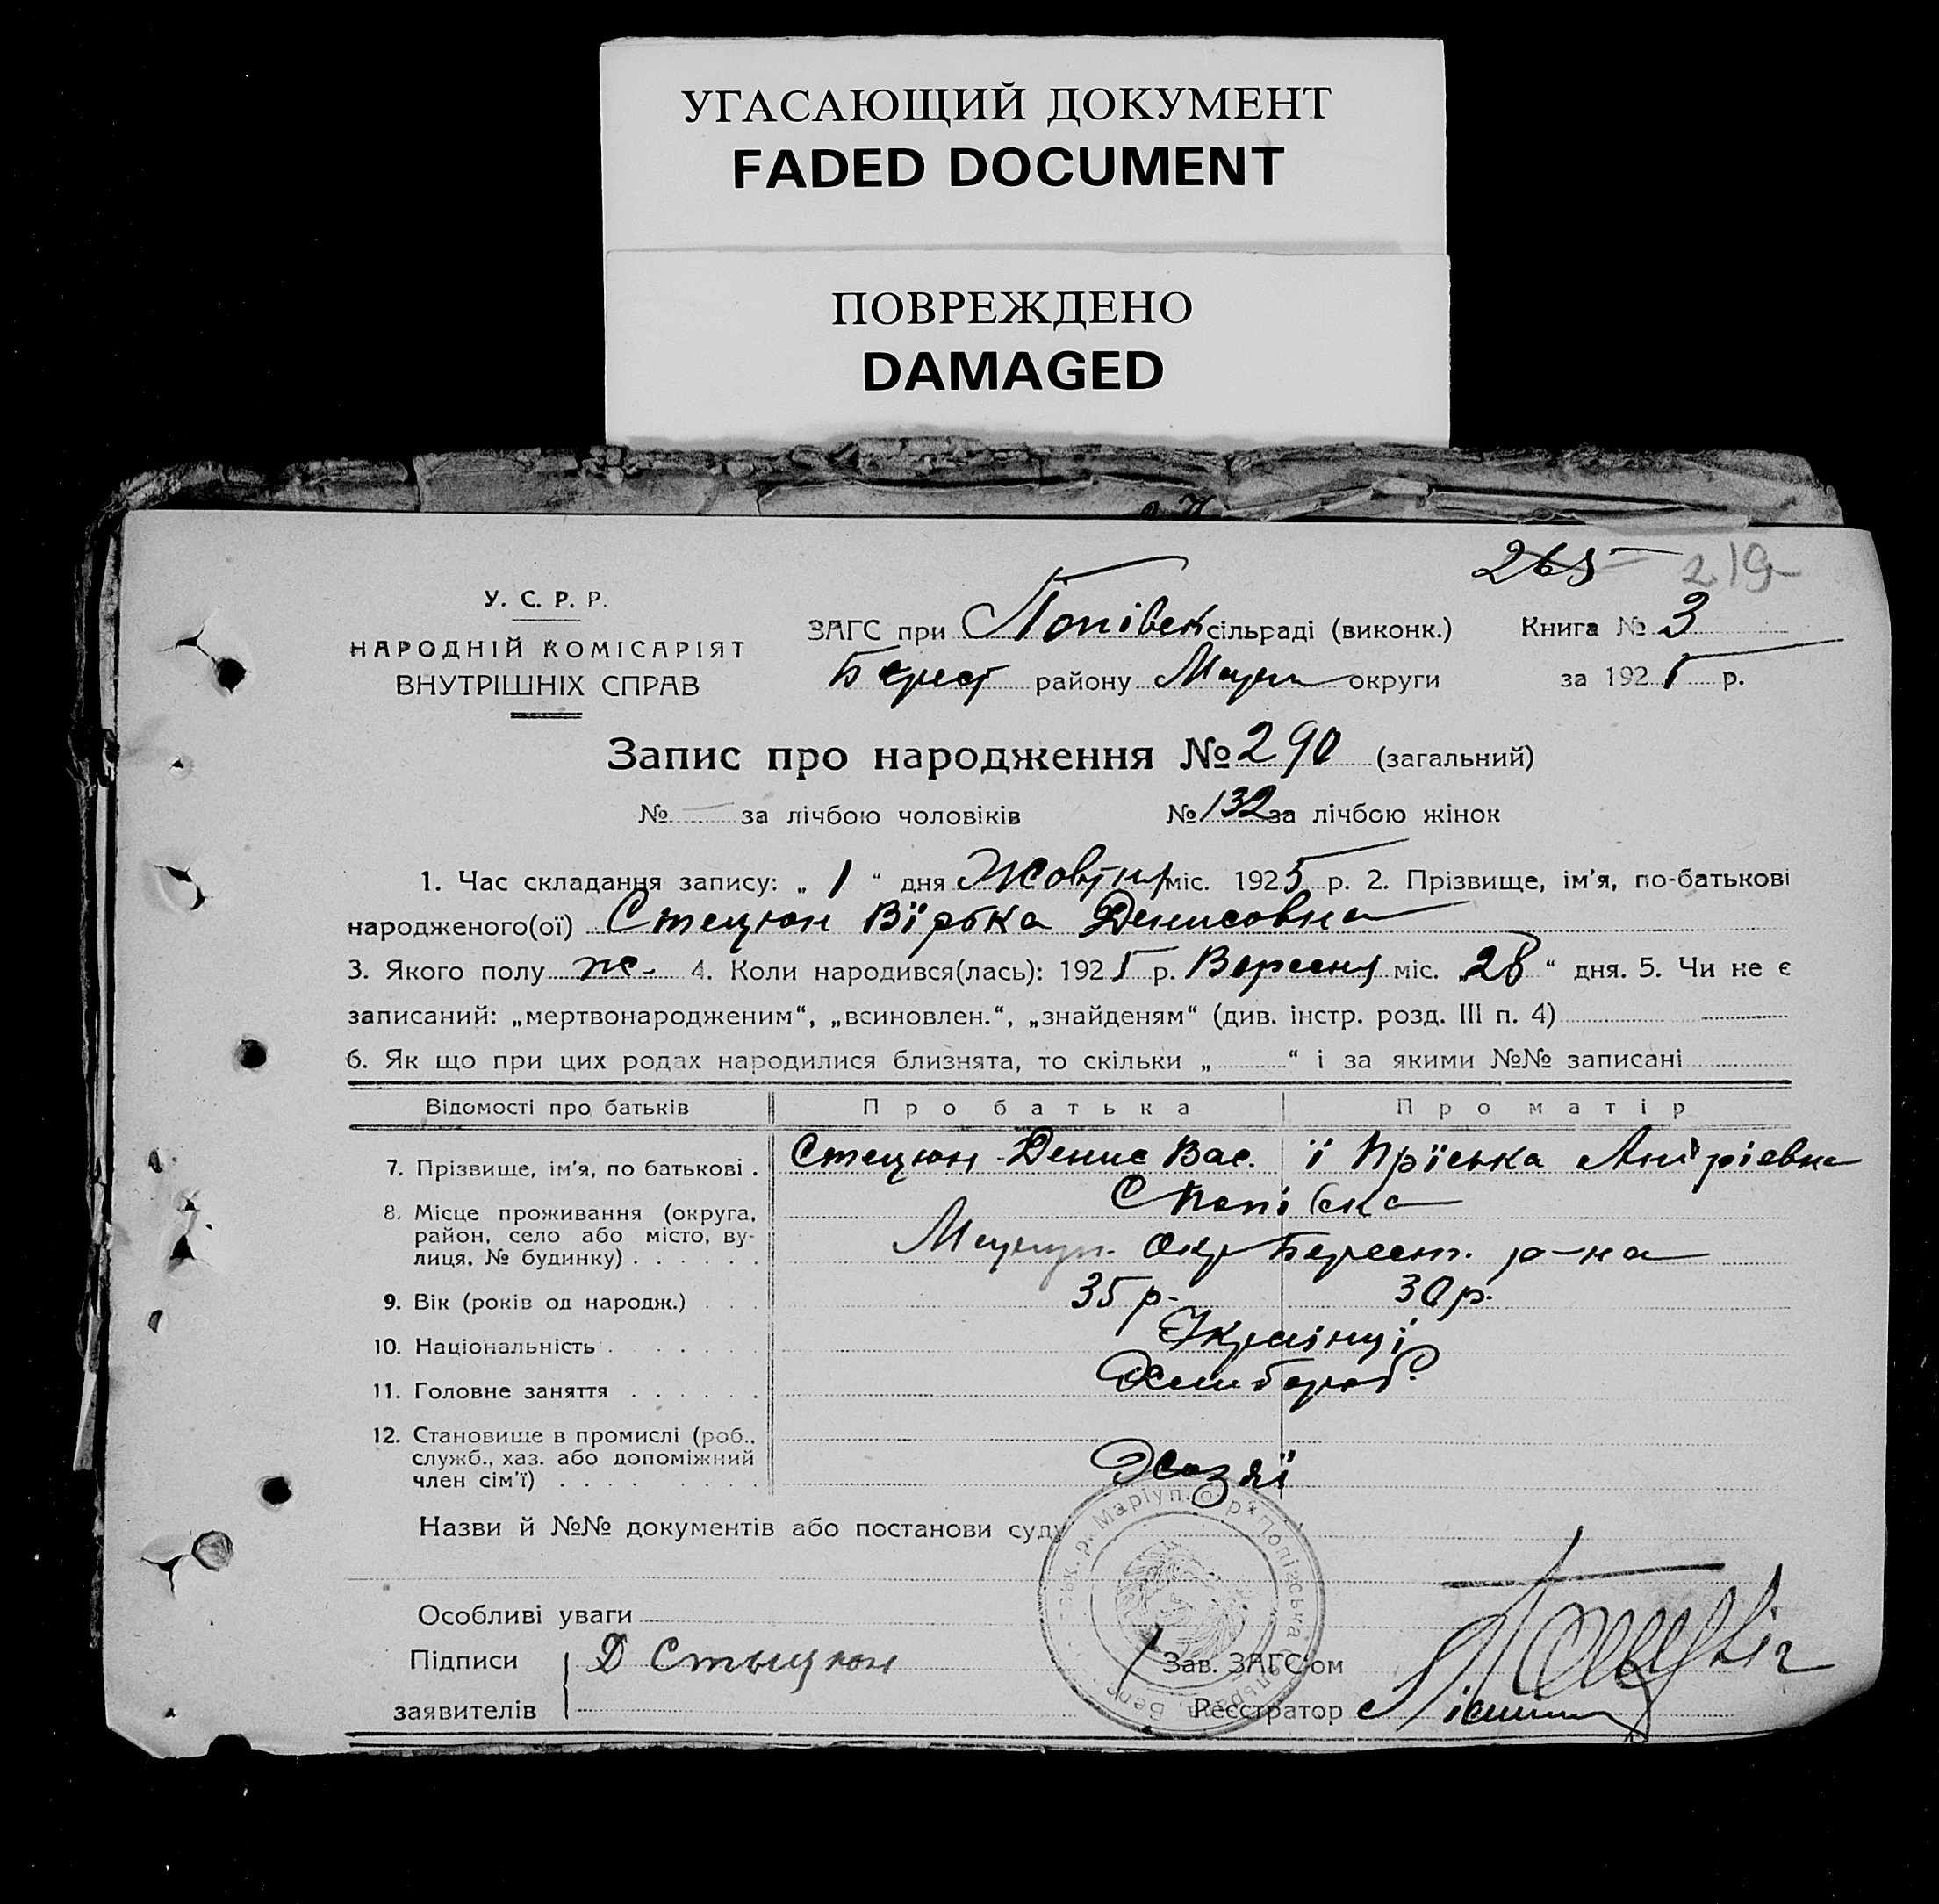 УГАСАЮЩИЙ ДОКУМЕНТ
FADED DOCUMENT
ПОВРЕЖДЕНО
DAMAGED
265 219
У. С. Р. Р.
НАРОДНІЙ КОМІСАРІЯТ
ВНУТРІШНІХ СПРАВ
ЗАГС при Попівск сільраді (виконк.) Книга № 3
Берест району округи за 1925 р.
Запис про народження № 290 (загальний)
№ — за лічбою чоловіків № 132 за лічбою жінок
1. Час складання запису: „ 1 “ дня Жовтня міс. 1925 р. 2. Прізвище, ім’я, по-батькові
народженого(ої) Стецюн Вірка Денисовна
3. Якого полу ж. 4. Коли народився(лась): 1925 р. Вересня міс. „28“ дня. 5. Чи не є
записаний: „мертвонародженим“, „всиновлен.“, „знайденям“ (див. інстр. розд. III п. 4)
6. Як що при цих родах народилися близнята, то скільки „ “ і за якими №№ записані
Відомості про батьків Про батька Про матір
7. Прізвище, ім’я, по батькові . Стецюн Денис Вас. ї Пріська Андріевна
8. Місце проживання (округа, С Попівка
район, село або місто, ву-
лиця, № будинку) . . . . . . Окр Берест. р-на
9. Вік (років од народж.) . . . 35 р. 30 р.
10. Національність . . . . . . Українці
11. Головне заняття . . . . . . Хлибороб
12. Становище в промислі (роб.,
служб., хаз. або допоміжний
член сім’ї) . . . . . . . . Хазяї
Назви й №№ документів або постанови суду
Особливі уваги
Маріуп. окр * Попівська Сільрада
Підписи Д Стыцюн Зав. ЗАГС’ом
заявителів Реєстратор